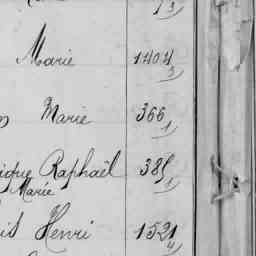 Marie 1404
3
Marie 366
1
Raphaël 385
Marie 1
Henri 1521
4